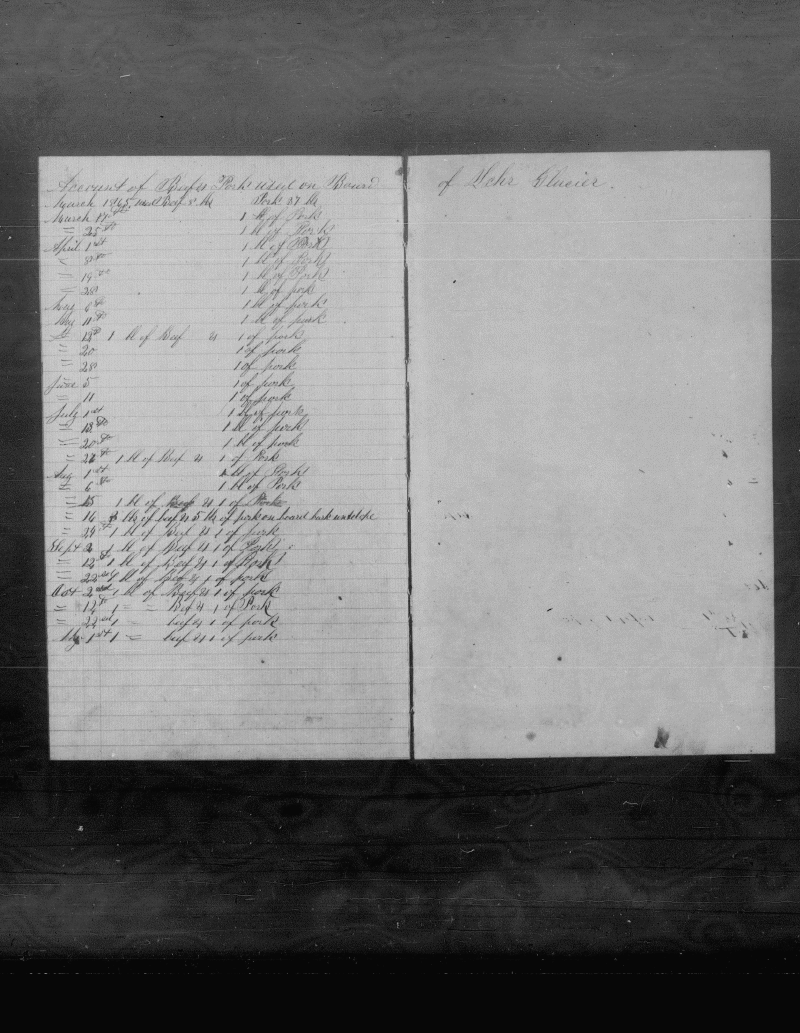 Account of Beef & Pork used on Board
of Schr Glacier.
March 1865 Beef 8 bl Pork 37 bl
March 17th 1 bl of Pork
" 25th 1 bl of Pork
April 1st 1 bl of Pork
" 8th 1 bl of Pork
" 19th 1 bl of Pork
" 28 1 bl of pork
May 6th 1 bl of pork
May 11th 1 bl of pork
13th 1 bl of Beef & 1 of pork
" 20 1 of pork
" 28 1 of pork
June 5 1 of pork
" 11 1 of pork
July 1st 1 bl of pork
" 18th 1 bl of pork
" 20th 1 bl of pork
" 1 bl of Beef & 1 of Pork
Aug 1st bl of Pork
" 6th 1 bl of Pork
" 15 1 bl of Beef & 1 of Pork
" 16 bls of beef & 5 bls of pork on board bark antelope
" 29th 1 bl of Beef & 1 of pork
Sept 2 1 bl of Beef & 1 of Pork
" 12th 1 bl of Beef & 1 of Pork
" 22nd 1 bl of Beef & 1 of pork
Oct 2nd 1 bl of Beef & 1 of pork
" 12th 1 " " Beef & 1 of Pork
" 22nd 1 " beef & 1 of pork
1st 1 " beef & 1 of pork